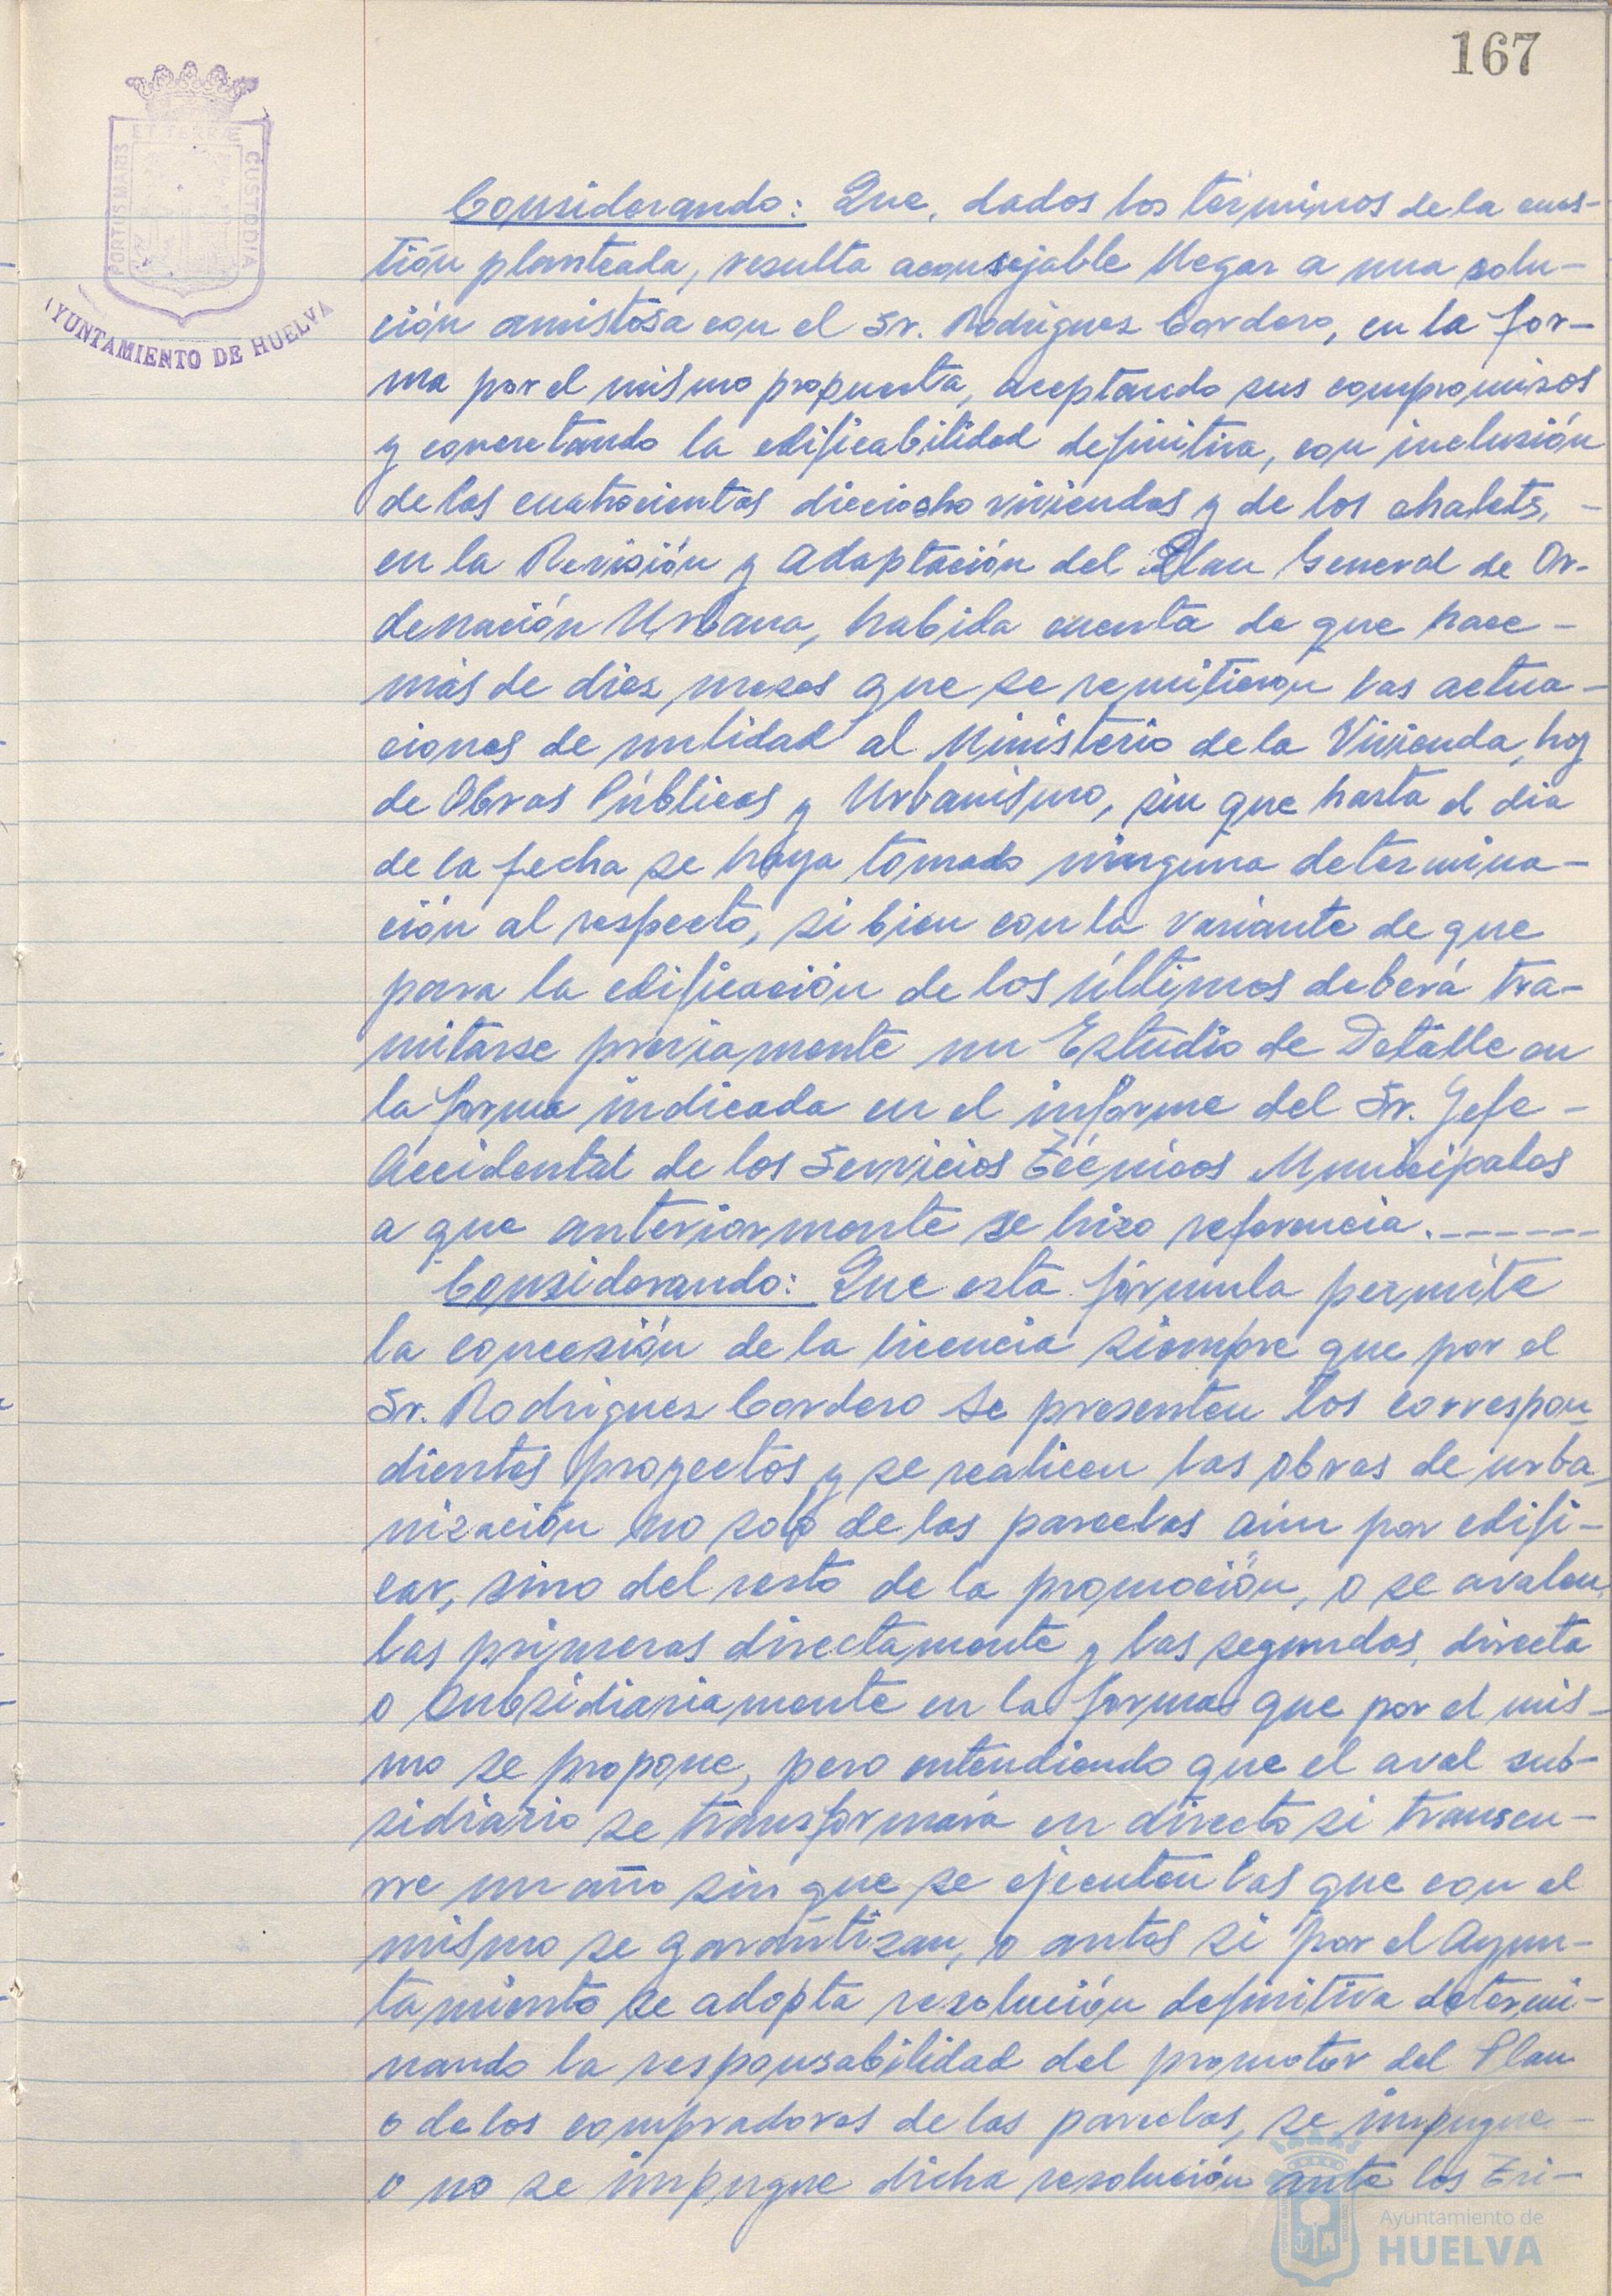 167
PORTUS MARIS ET TERRÆ CUSTODIA
AYUNTAMIENTO DE HUELVA
Considerando: Que, dados los términos de la cues-
tión planteada, resulta aconsejable llegar a una solu-
ción amistosa con el Sr. Rodríguez Cordero, en la for-
ma por el mismo propuesta, aceptando sus compromisos
y concretando la edificabilidad definitiva, con inclusión
de las cuatrocientas dieciocho viviendas y de los chalets, -
en la Revisión y Adaptación del Plan General de Or-
denación Urbana, habida cuenta de que hace -
más de diez meses que se remitieron las actua-
ciones de nulidad al Ministerio de la Vivienda, hoy
de Obras Públicas y Urbanismo, sin que hasta el dia
de la fecha se haya tomado ninguna determina-
ción al respecto, si bien con la variante de que
para la edificación de los últimos deberá tra-
mitarse previamente un Estudio de Detalle en
la forma indicada en el informe del Sr. Jefe -
Accidental de los Servicios Técnicos Municipales
a que anteriormente se hizo referencia.------
Considerando: Que esta fórmula permite
la concesión de la licencia siempre que por el
Sr. Rodríguez Cordero se presenten los correspon-
dientes proyectos y se realicen las obras de urba-
nización no solo de las parcelas aún por edifi-
car, sino del resto de la promoción, o se avalen
las primeras directamente y las segundas, directa
o subsidiariamente en las formas que por el mis-
mo se propone, pero entendiendo que el aval sub-
sidiario se transformará en directo si transcu-
rre un año sin que se ejecuten las que con el
mismo se garantizan, o antes si por el Ayun-
tamiento se adopta resolución definitiva determi-
nando la responsabilidad del promotor del Plan
o de los compradores de las parcelas, se impugne -
o no se impugne dicha resolución ante los Tri-
Ayuntamiento de
HUELVA